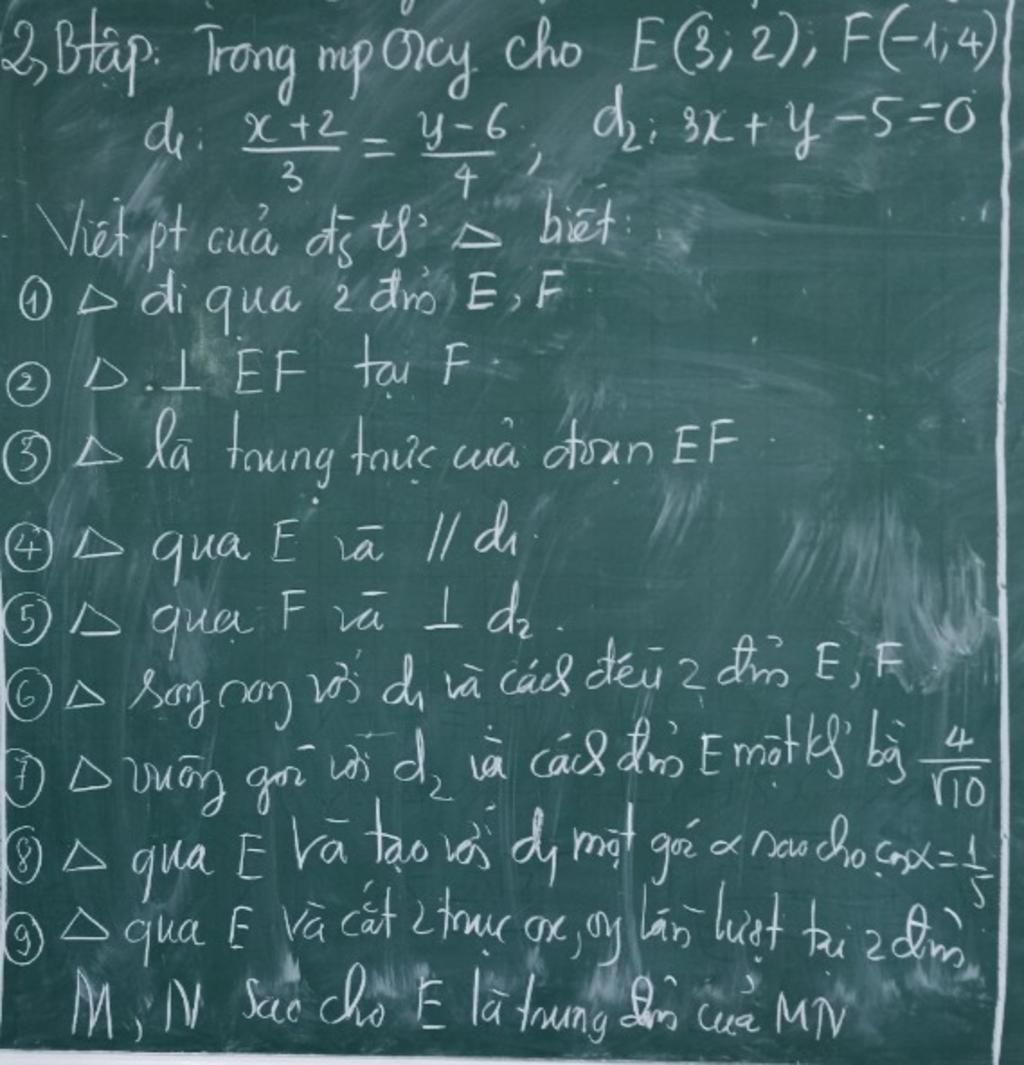 2, Btập: Trong mp Oxy cho E(3; 2); F(-1; 4)
d₁: (x+2)/3 = (y-6)/4; d₂: 3x + y - 5 = 0
Viết pt của đg th' △ biết:
① △ đi qua 2 đm̉ E, F
② △ ⊥ EF tại F
③ △ là trung trực của đoạn EF
④ △ qua E và // d₁
⑤ △ qua F và ⊥ d₂.
⑥ △ song song với d₁ và cách đều 2 đm̉ E, F
⑦ △ vuông góc với d₂ và cách đm̉ E một kh' bg 4/√10
⑧ △ qua E và tạo với d₁ một góc α sao cho cosα = 1/5
⑨ △ qua E và cắt 2 trục ox, oy lần lượt tại 2 đm̉
M, N sao cho E là trung đm̉ của MN